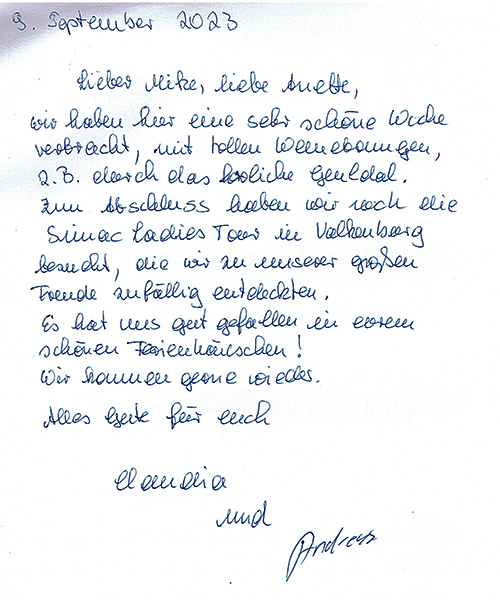 9. September 2023
Lieber Mike, liebe Anette,
wir haben hier eine sehr schöne Woche
verbracht, mit tollen Wanderungen,
z.B. durch das liebliche Geuldal.
Zum Abschluss haben wir noch die
Simac Ladies Tour in Valkenburg
besucht, die wir zu unserer großen
Freude zufällig entdeckten.
Es hat uns gut gefallen in eurem
schönen Ferienhäuschen!
Wir kommen gerne wieder.
Alles Gute für euch
Claudia
und
Andreas